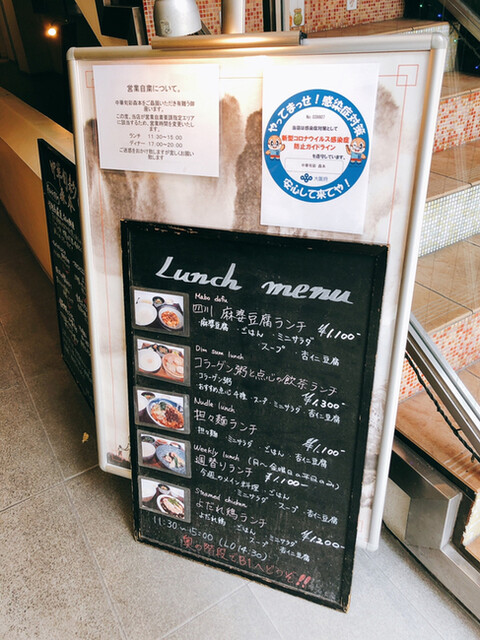 営業自粛について。
中華旬彩森本をご愛顧いただき有難う御座います。
この度、当店が営業自粛要請指定エリアに該当するため、営業時間を変更いたします。
ランチ 11:30～15:00
ディナー 17:00～20:00
ご迷惑をおかけ致しますが宜しくお願い致します
やってまっせ!感染症対策
当店は感染症対策として
新型コロナウイルス感染症
防止ガイドライン
を遵守しています。
中華旬彩 森本
大阪府
安心して来てや!
Lunch menu
Mabo dofu
四川 麻婆豆腐ランチ ¥1,100-
・麻婆豆腐 ・ごはん ・ミニサラダ
・スープ ・杏仁豆腐
Dim sum lunch
コラーゲン粥と点心の飲茶ランチ
・コラーゲン粥 ¥1,300-
・おすすめ点心4種 ・スープ ・ミニサラダ ・杏仁豆腐
Noodle lunch
担々麺ランチ ¥1,100-
・担々麺 ・ミニサラダ ・杏仁豆腐
Weekly lunch (月～金曜日の平日のみ)
週替りランチ ¥1,100-
・今週のメイン料理 ・ごはん
・ミニサラダ ・スープ ・杏仁豆腐
Steamed chicken
よだれ鶏ランチ ¥1,200-
・よだれ鶏 ・ごはん ・ミニサラダ
・スープ ・杏仁豆腐
11:30～15:00 (LO 14:30)
奥の階段でB1へどうぞ!!